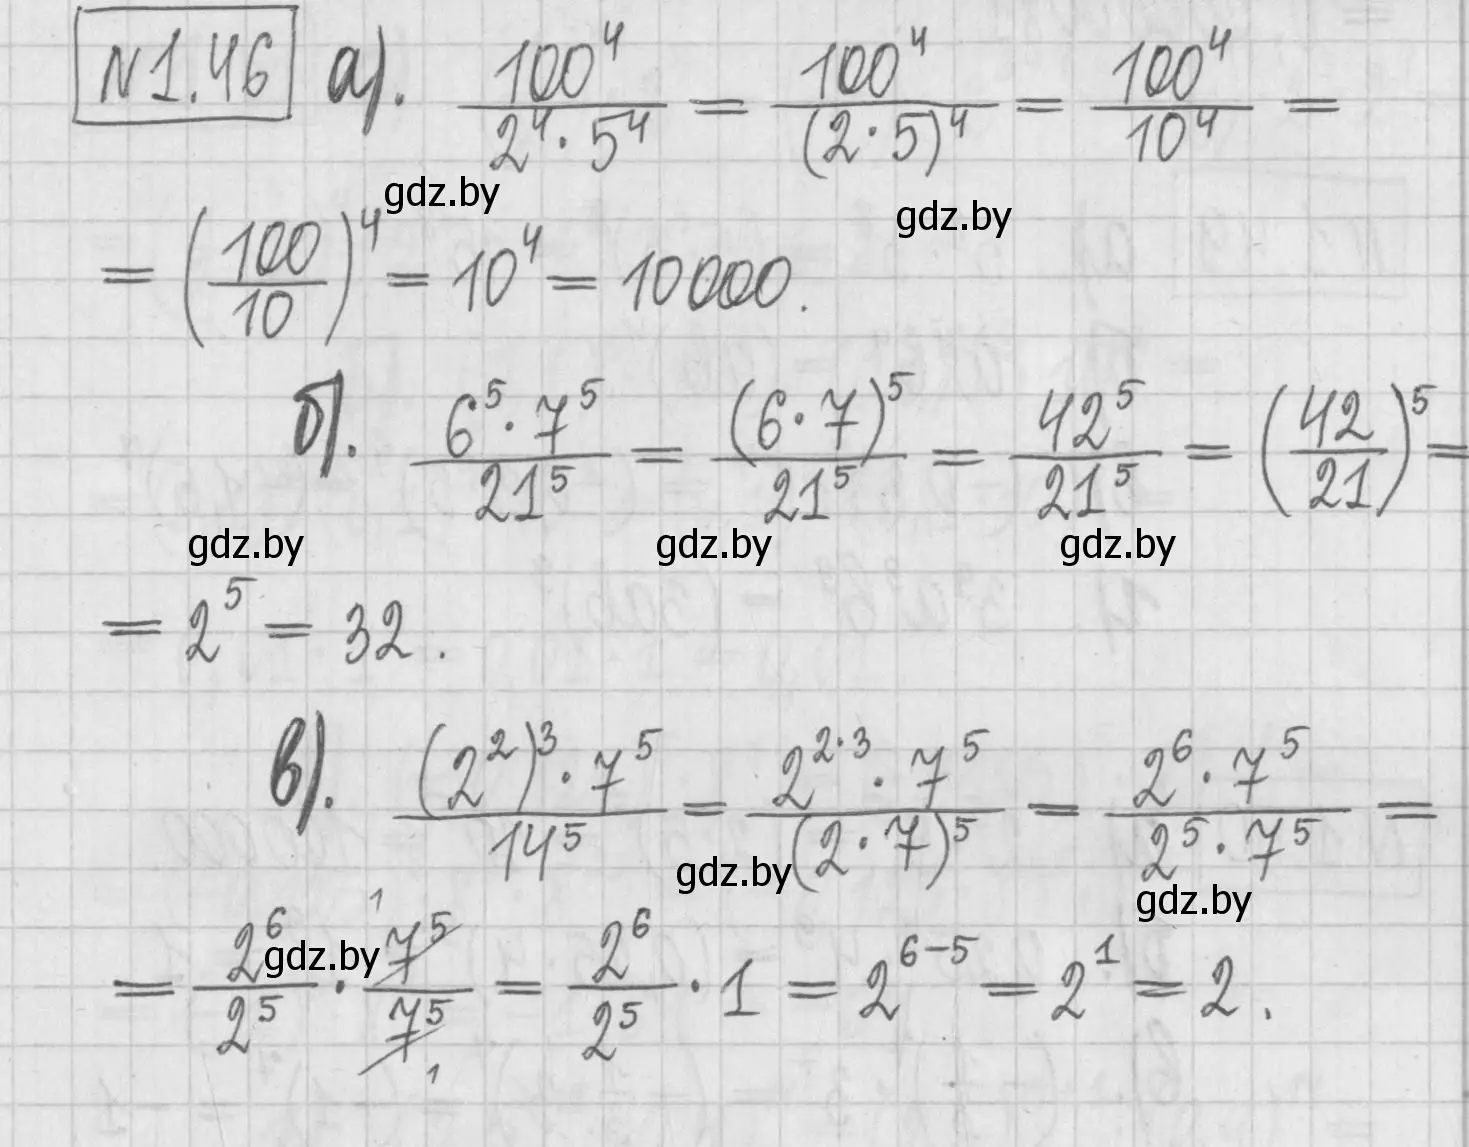 №1.46 а). 100⁴/(2⁴·5⁴) = 100⁴/(2·5)⁴ = 100⁴/10⁴ =
gdz.by gdz.by
= (100/10)⁴ = 10⁴ = 10000.
б). (6⁵·7⁵)/21⁵ = (6·7)⁵/21⁵ = 42⁵/21⁵ = (42/21)⁵ =
gdz.by gdz.by gdz.by
= 2⁵ = 32.
в). ((2²)³·7⁵)/14⁵ = (2²·³·7⁵)/(2·7)⁵ = (2⁶·7⁵)/(2⁵·7⁵) =
gdz.by gdz.by
= 2⁶/2⁵ · 7⁵ ¹/7⁵ ₁ = 2⁶/2⁵ · 1 = 2⁶⁻⁵ = 2¹ = 2.
gdz.by